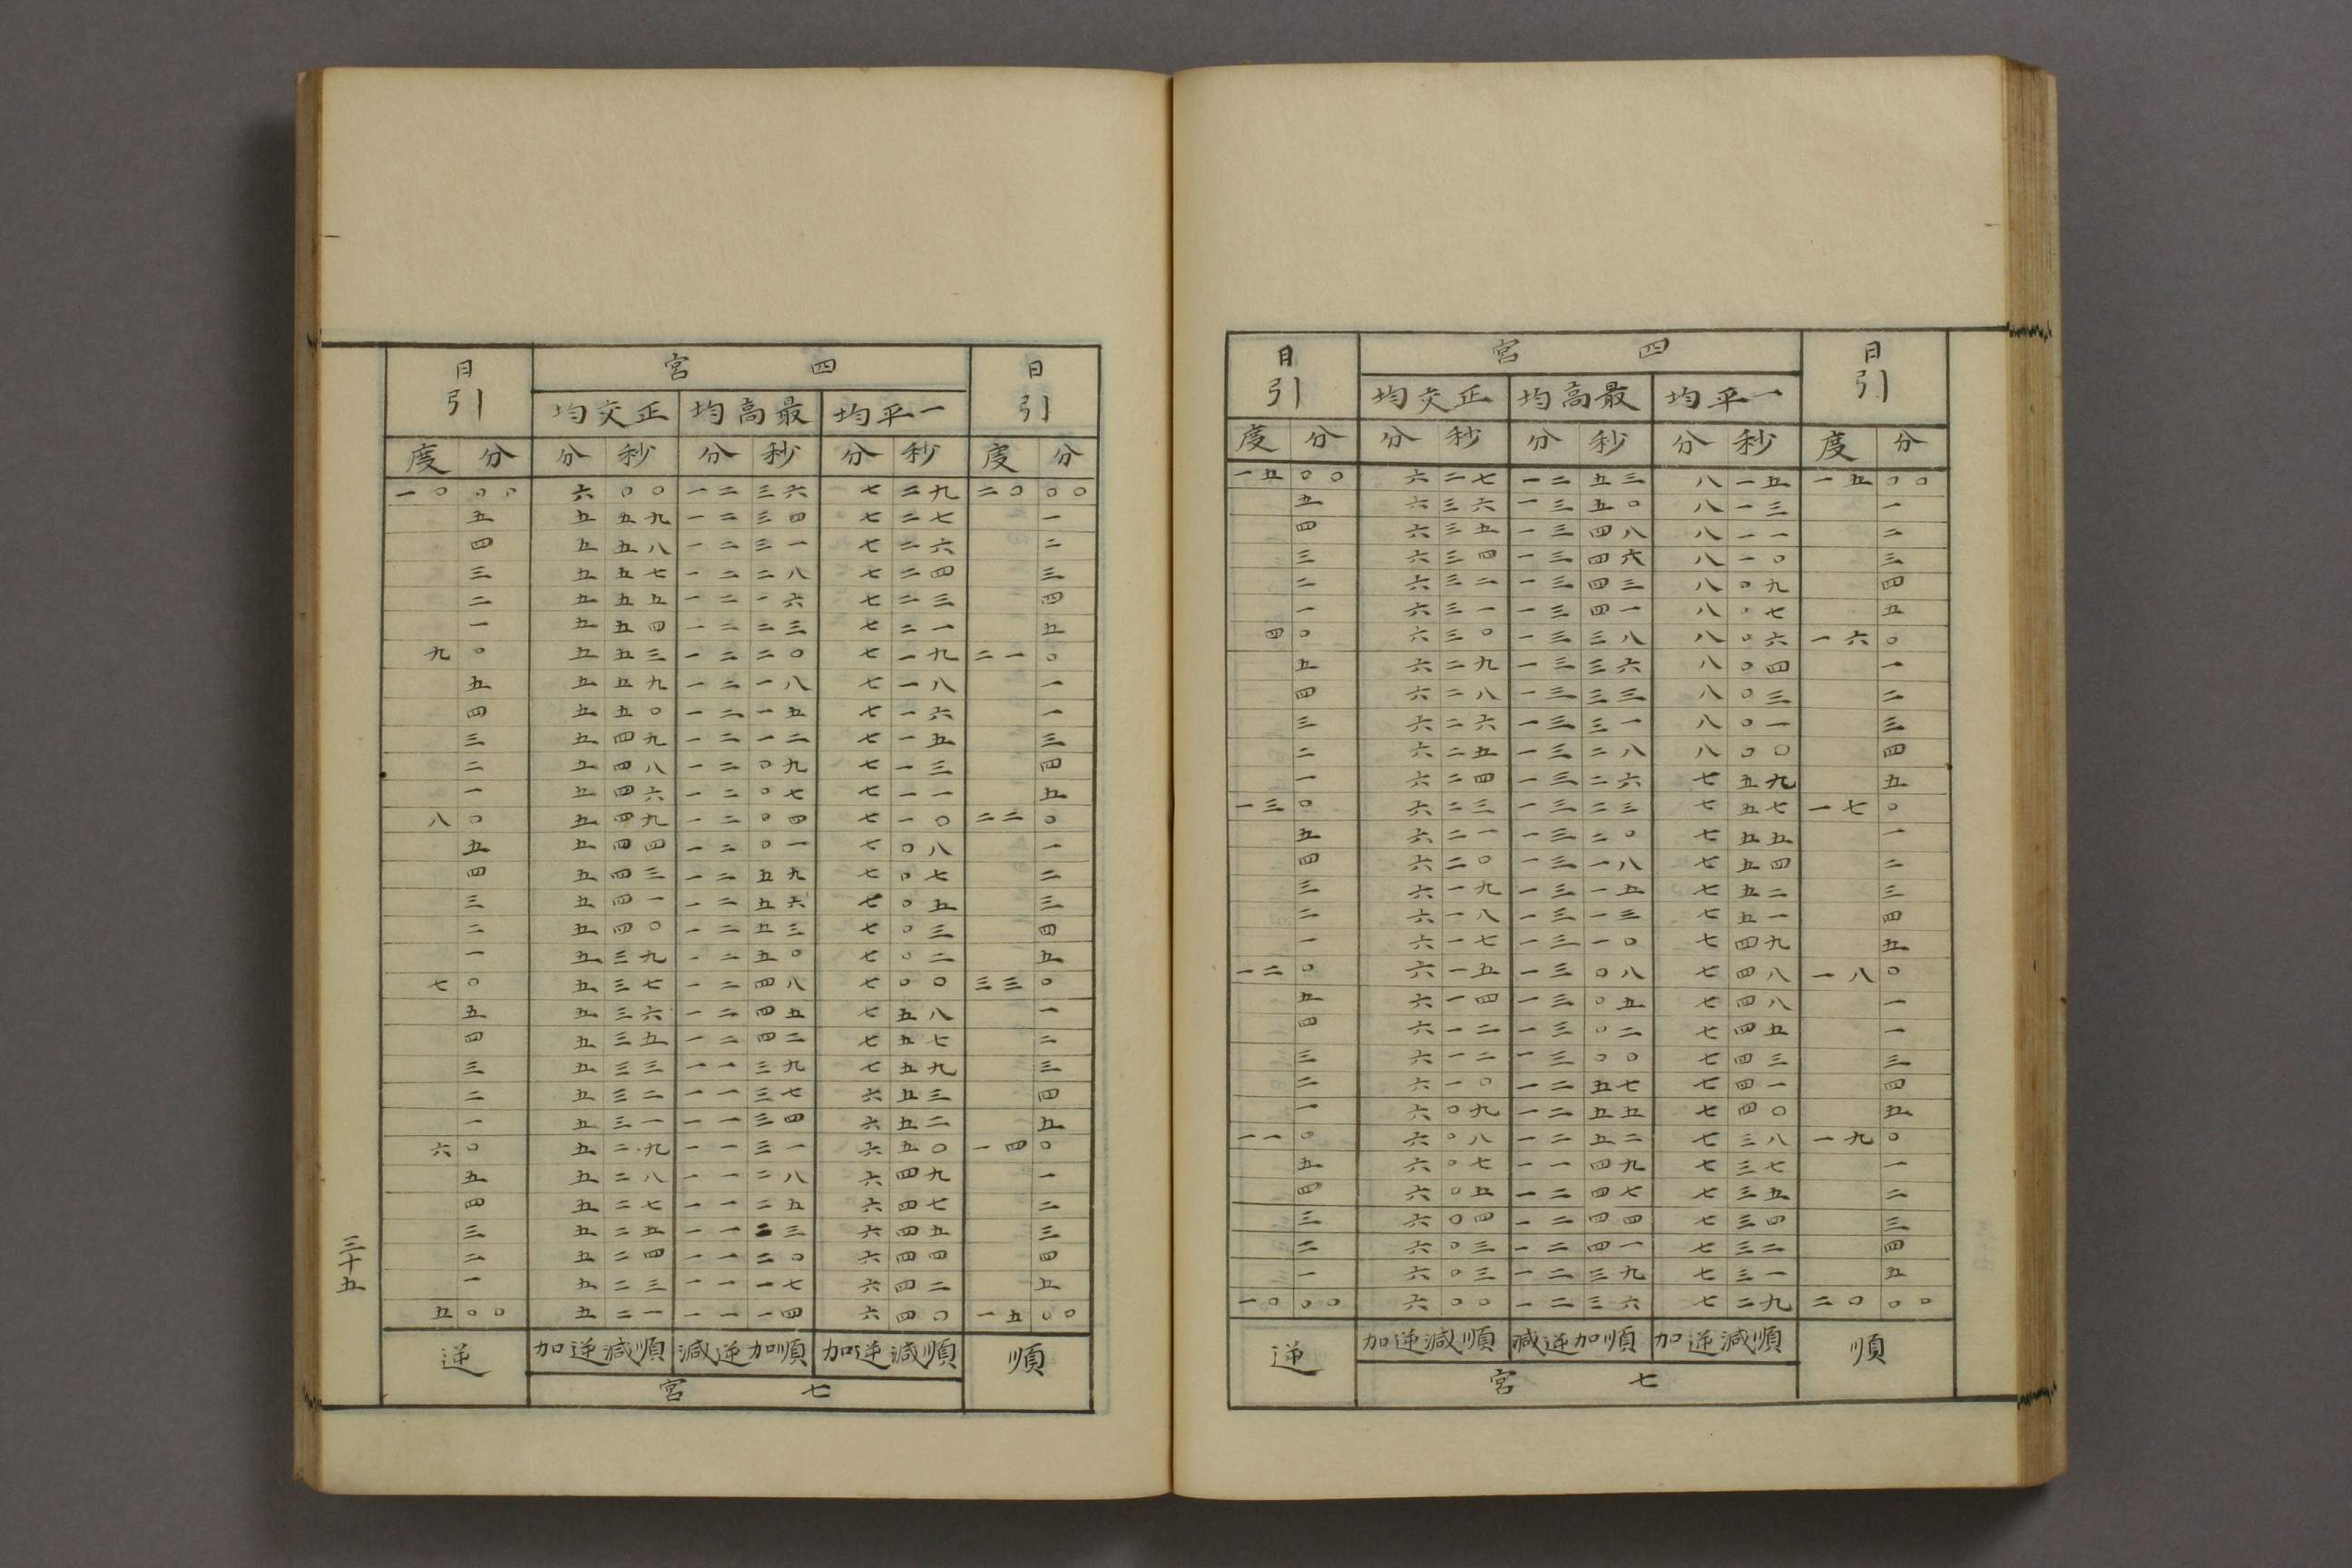 日引 四宮 日引
一平均 最高均 正交均
度 分 分 秒 分 秒 分 秒 度 分
一五 〇〇 六 二七 一二 五三 八 一五 一五 〇〇
五 六 三六 一三 五〇 八 一三 一
四 六 三五 一三 四八 八 一一 二
三 六 三四 一三 四六 八 一〇 三
二 六 三二 一三 四三 八 〇九 四
一 六 三一 一三 四一 八 〇七 五
四 〇 六 三〇 一三 三八 八 〇六 一六 〇
五 六 二九 一三 三六 八 〇四 一
四 六 二八 一三 三三 八 〇三 二
三 六 二六 一三 三一 八 〇一 三
二 六 二五 一三 二八 八 〇〇 四
一 六 二四 一三 二六 七 五九 五
一三 〇 六 二三 一三 二三 七 五七 一七 〇
五 六 二一 一三 二〇 七 五五 一
四 六 二〇 一三 一八 七 五四 二
三 六 一九 一三 一五 七 五二 三
二 六 一八 一三 一三 七 五一 四
一 六 一七 一三 一〇 七 四九 五
一二 〇 六 一五 一三 〇八 七 四八 一八 〇
五 六 一四 一三 〇五 七 四八 一
四 六 一二 一三 〇二 七 四五 一
三 六 一二 一三 〇〇 七 四三 三
二 六 一〇 一二 五七 七 四一 四
一 六 〇九 一二 五五 七 四〇 五
一一 〇 六 〇八 一二 五二 七 三八 一九 〇
五 六 〇七 一一 四九 七 三七 一
四 六 〇五 一二 四七 七 三五 二
三 六 〇四 一二 四四 七 三四 三
二 六 〇三 一二 四一 七 三二 四
一 六 〇三 一二 三九 七 三一 五
一〇 〇〇 六 〇〇 一二 三六 七 二九 二〇 〇〇
順 順減逆加 順加逆減 順減逆加 逆
七宮
日引 四宮 日引
一平均 最高均 正交均
度 分 分 秒 分 秒 分 秒 度 分
一〇 〇〇 六 〇〇 一二 三六 七 二九 二〇 〇〇
五 五 五九 一二 三四 七 二七 一
四 五 五八 一二 三一 七 二六 二
三 五 五七 一二 二八 七 二四 三
二 五 五五 一二 一六 七 二三 四
一 五 五四 一二 二三 七 二一 五
九 〇 五 五三 一二 二〇 七 一九 二一 〇
五 五 五九 一二 一八 七 一八 一
四 五 五〇 一二 一五 七 一六 一
三 五 四九 一二 一二 七 一五 三
二 五 四八 一二 〇九 七 一三 四
一 五 四六 一二 〇七 七 一一 五
八 〇 五 四九 一二 〇四 七 一〇 二二 〇
五 五 四四 一二 〇一 七 〇八 一
四 五 四三 一二 五九 七 〇七 二
三 五 四一 一二 五六 七 〇五 三
二 五 四〇 一二 五三 七 〇三 四
一 五 三九 一二 五〇 七 〇二 五
七 〇 五 三七 一二 四八 七 〇〇 三三 〇
五 五 三六 一二 四五 七 五八 一
四 五 三五 一二 四二 七 五七 二
三 五 三三 一一 三九 七 五九 三
二 五 三二 一一 三七 六 五三 四
一 五 三一 一一 三四 六 五二 五
六 〇 五 二九 一一 三一 六 五〇 一四 〇
五 五 二八 一一 二八 六 四九 一
四 五 二七 一一 二五 六 四七 二
三 五 二五 一一 二三 六 四五 三
二 五 二四 一一 二〇 六 四四 四
一 五 二三 一一 一七 六 四二 五
五 〇〇 五 二一 一一 一四 六 四〇 一五 〇〇
順 順減逆加 順加逆減 順減逆加 逆
七宮
三十五